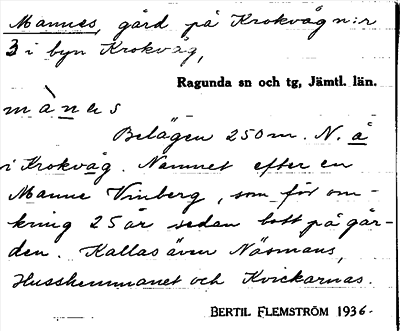 Mannes, gård på Krokvåg n:r
3 i byn Krokvåg,
Ragunda sn och tg, Jämtl. län.
mànes
Belägen 250 m. N. å
i Krokvåg. Namnet efter en
Manne Vinberg, som för om-
kring 25 år sedan bott på går-
den. Kallas även Näsmans,
Husshemmanet och Kvickarnas.
BERTIL FLEMSTRÖM 1936.